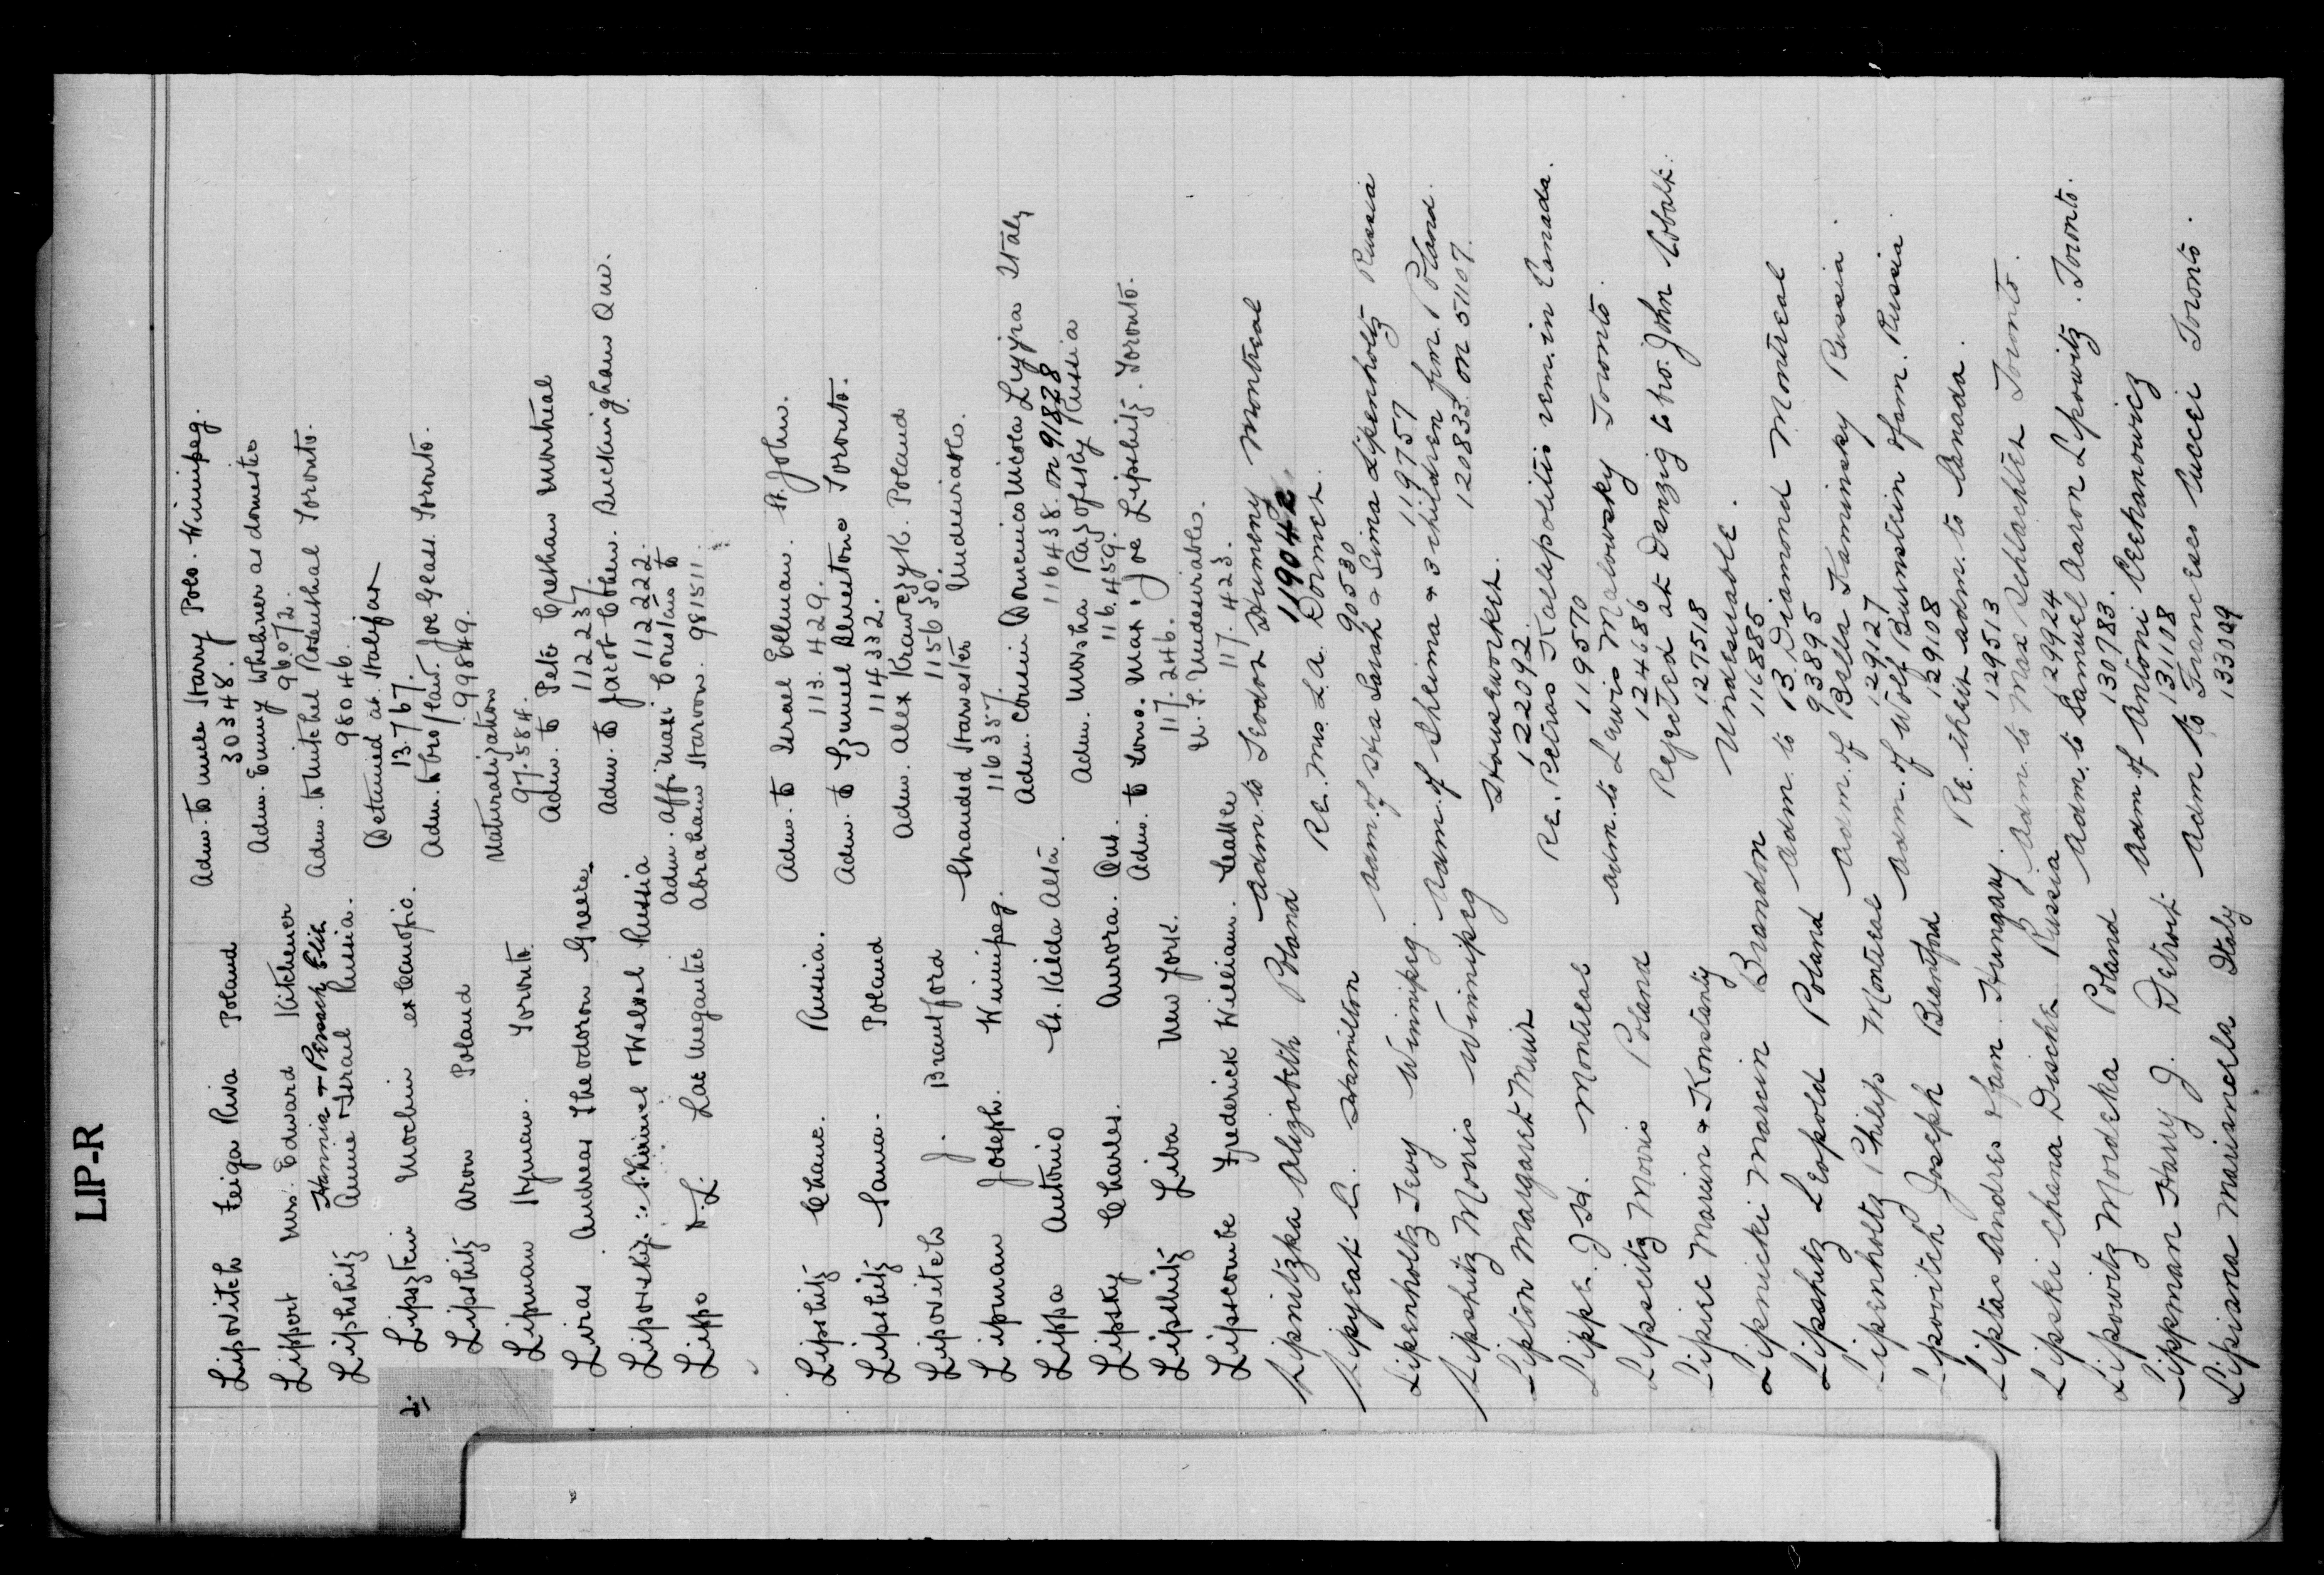 LIP-R
2.
Lipovitch Feiga Riva Poland Adm. to uncle Harry Polo. Winnipeg.
30348.
Lippert Mrs. Edward Kitchener Adm. Emmy Wehner as domestic
96072.
Hannia + Pessach Elia
Lipshitz Anne + Israel Russia. Adm. to Mitchel Rosenthal Toronto.
98046.
Lipsztein Mochin ex Canopic. Detained at Halifax
13.767.
Lipshitz Aron Poland Adm. to bro/law. Joe Glass. Toronto.
99849.
Lipman Hyman. Toronto. Naturalization
97.584.
Liras Andreas Theodoron Greece. Adm. to Pete Crethan Montreal
112237.
Liporsky: Shimel + Welvel Russia Adm. to Jacob Cohen. Buckingham Que.
112222.
Adm. affi. maxi Constans to
Lippo D. L. Lac Megantic Abraham Harvon. 981511.
Lipshitz Chane. Russia. Adm. to Israel Ellman. St. John.
113.429.
Lipshitz Sama. Poland Adm. to Szmul Blnestone Toronto.
114.332.
Lipovitch J. Brantford Adm. Alex Krawczyk. Poland
115630.
Lipman Joseph. Winnipeg. Stranded Harvester Undesirable.
116357.
Lippa Antonio St. Kilda Alta. Adm. Cousin Domenico Nicola Lizzira Italy
116438. on 91828
Lipsky Charles. Aurora. Ont. Adm. Mosha Razofsky Russia
116.459.
Lipshitz Liba New York. Adm. to sons. Max & Joe Lipshitz. Toronto.
117.246.
Lipscombe Frederick William. Seattle U. S. Undesirable.
117.423.
Lipnitzka Alizabeth Poland Adm. to Teodor Humeny Montreal
119042
Lipyeat C. Hamilton Re. Mrs. L.A. Dormer.
90530
Lipenholtz Tevy Winnipeg. Adm. of Sara Sarah & Sima Lipenholtz Russia
119757
Lipshitz Morris Winnipeg Adm. of Sheima & 3 children from Poland.
120833 on 51107.
Lipton Margaret Muir Houseworker.
122092.
Lippe. J.H. Montreal Re. Petros Kallepolitis rem. in Canada.
119570
Lipscitz Morris Poland Adm. to Lewis Malowsky Toronto.
124686
Lipiec Marcin & Konstanty Rejected at Danzig to bro. John Cobalt.
127518
Lipnicki Marcin Brandon Undesirable.
116885
Lipshitz Leopold Poland Adm. to B. Diamond Montreal
93895
Lipenholtz Philip Montreal Adm. of Bella Kaminsky Russia.
129127
Lipovitch Joseph Brantford Adm. of Wolf Burnstein & fam. Russia.
129108
Liptas Andres & fam. Hungary. Re. their adm. to Canada.
129513
Lipski Chana Dischk Russia Adm. to Max Schlachter Toronto.
129924
Lipowitz Mordcka Poland Adm. to Samuel Aaron Lipowitz. Toronto.
130783.
Lippman Harry J. Detroit Adm of Antoni Ciechanowicz
131108
Lipisna Marisncla Italy Adm to Francesco Cucci Toronto.
133009